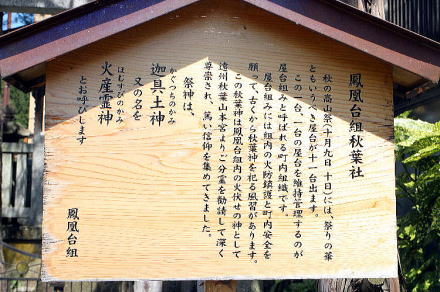 鳳凰台組秋葉社
秋の高山祭（十月九日 十日）には、祭りの華
ともいうべき屋台が十一台出ます。
この一台、一台の屋台を維持管理するのが
屋台組みと呼ばれる町内組織です。
屋台組みには組内の火防鎮護と町内安全を
願って、古くから秋葉神を祀る風習があります。
この秋葉神は鳳凰台組内の火伏せの神として
遠州秋葉山本宮よりご分霊を勧請して深く
尊崇され、篤い信仰を集めてきました。
祭神は、
かぐつちのかみ
迦具土神
又の名を
ほむすびのかみ
火産霊神
とお呼びします
鳳凰台組